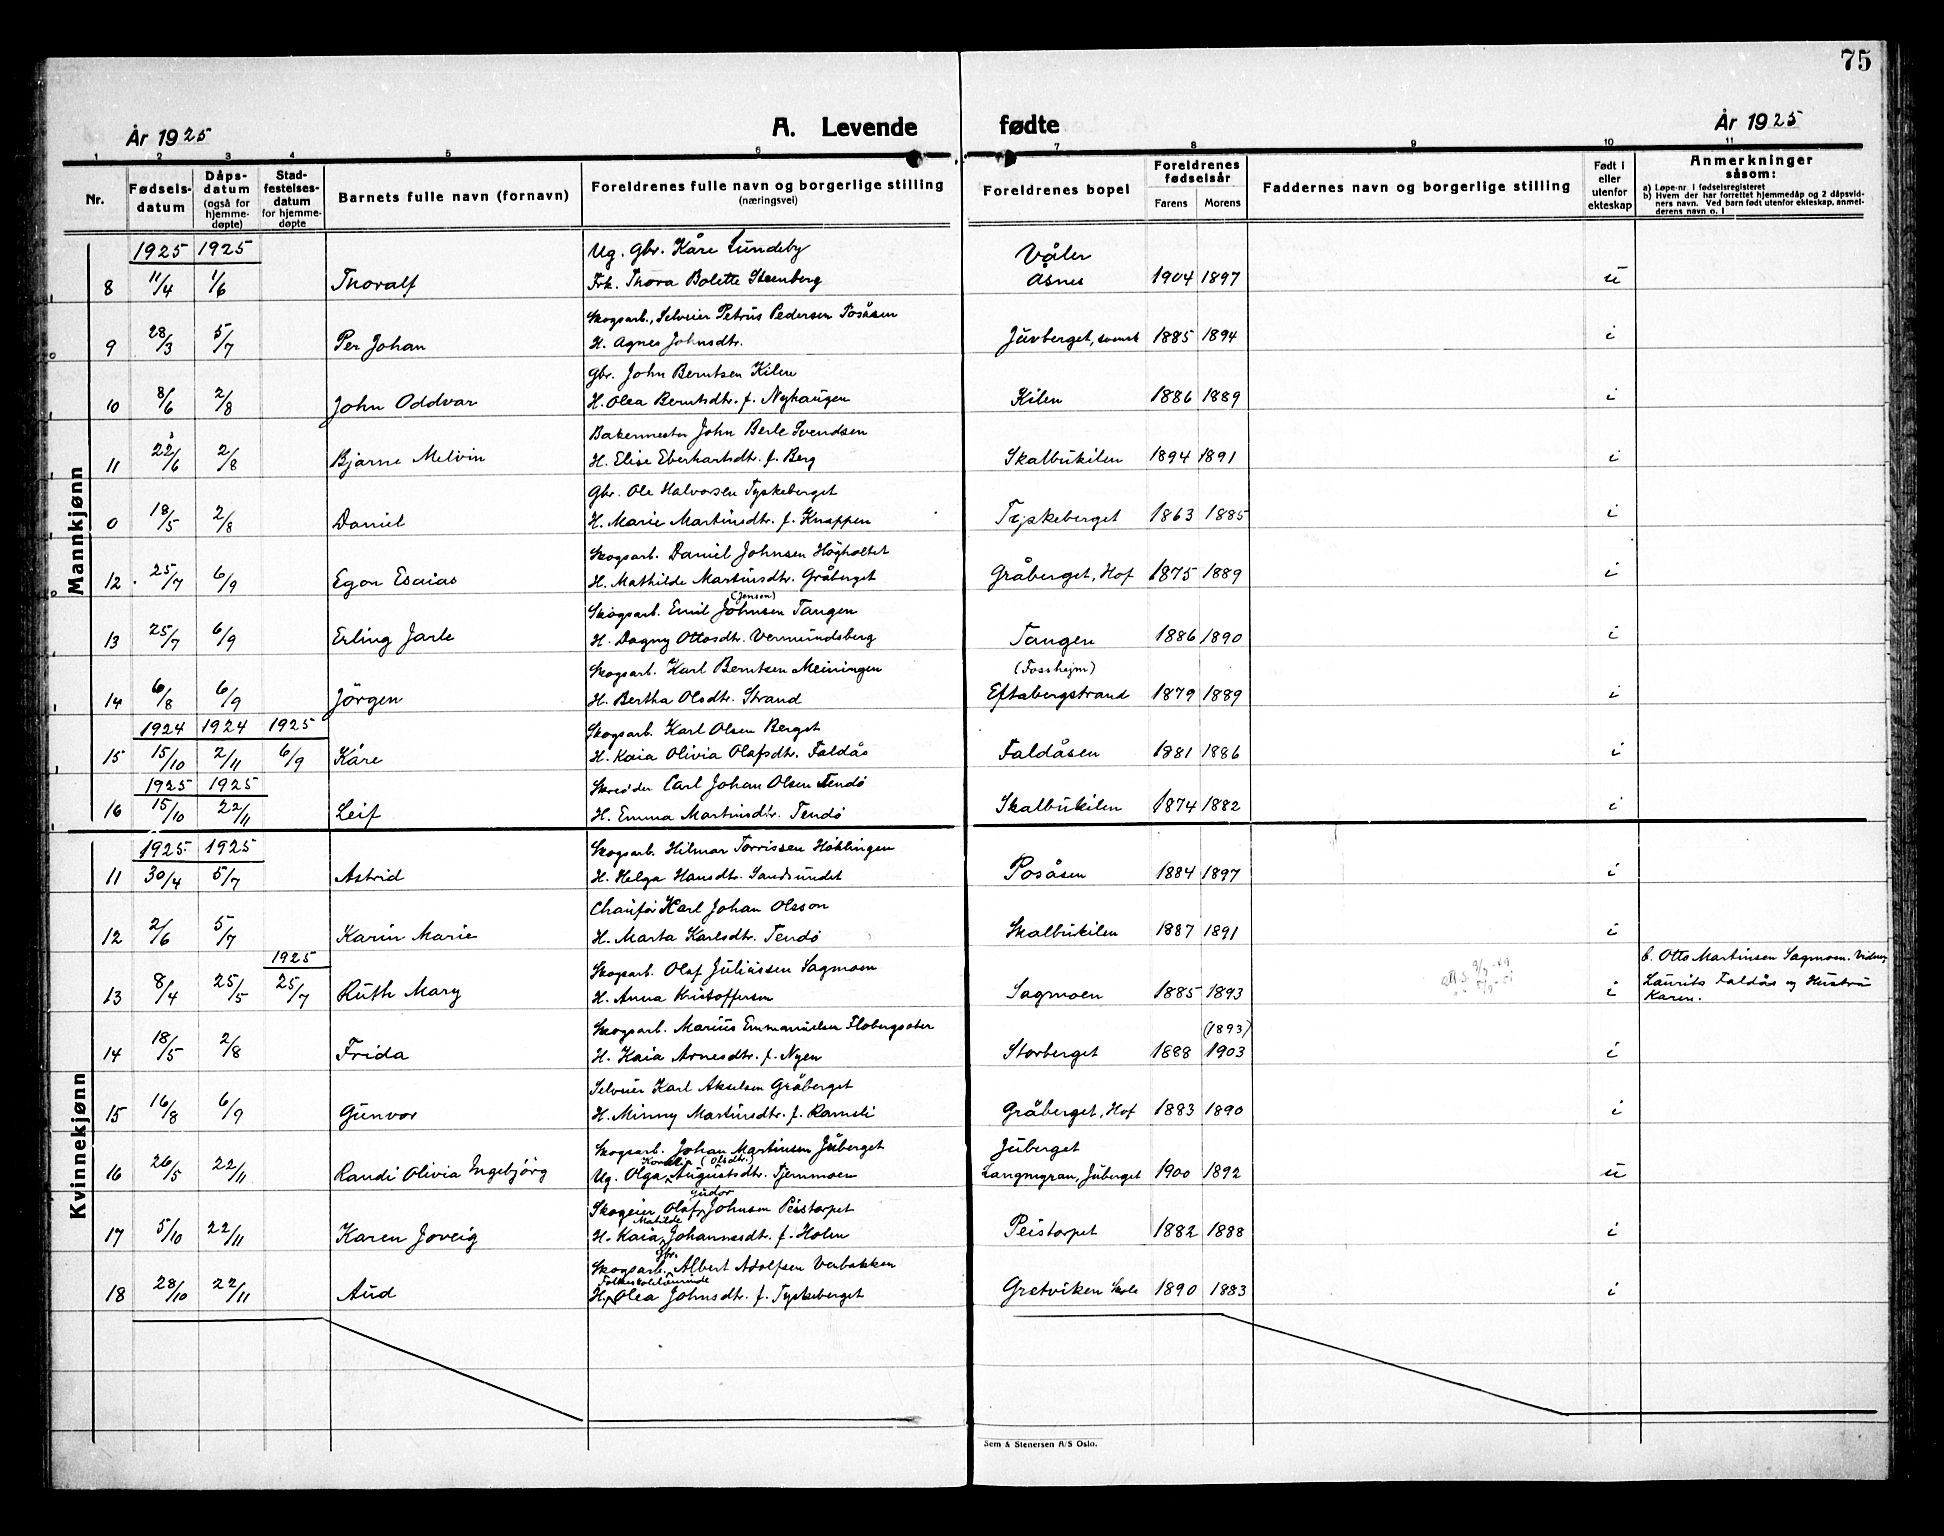 75
År 1925
A. Levende fødte
År 1925
1 2 3 4 5 6 7 8 9 10 11
Nr.
Fødsels-
datum
Dåps-
datum
(også for
hjemme-
døpte)
Stad-
festelses-
datum
for hjemme-
døpte
Barnets fulle navn (fornavn)
Foreldrenes fulle navn og borgerlige stilling
(næringsvei)
Foreldrenes bopel
Foreldrenes
fødselsår
Farens Morens
Faddernes navn og borgerlige stilling
Født i
eller
utenfor
ekteskap
Anmerkninger
såsom:
a) Løpe-nr. i fødselsregisteret
b) Hvem der har forrettet hjemmedåp og 2 dåpsvid-
ners navn. Ved barn født utenfor ekteskap, anmel-
derens navn o. l
Mannkjønn
1925 1925 Ug. Gbr. Kåre Lundeby Våler
8 11/4 1/6 Thoralf Frk. Thora Bolette Stenberg Åsnes 1904 1897 u
Skogsarb., Selveier Petrus Pedersen Posåsen
9 28/3 5/7 Per Johan H. Agnes Johnsdtr. Juvberget, svensk 1885 1894 i
Gbr. John Berntsen Kilen
10 8/6 2/8 John Oddvar H. Olea Berntsdtr. f. Nyhaugen Kilen 1886 1889 i
Bakermester John Berle Svendsen
11 22/6 2/8 Bjarne Melvin H. Elise Eberhartsdtr. f. Berg Skalbukilen 1894 1891 i
Gbr. Ole Halvorsen Tyskeberget
0 18/5 2/8 Daniel H. Marie Martinsdtr. f. Knappen Tyskeberget 1863 1885 i
Skogsarb. Daniel Johnsen Högholtet
12 25/7 6/9 Egon Esaias H. Mathilde Martinsdtr. Gråberget Gråberget, Hof 1875 1889 i
(Jensen)
Skogsarb. Emil Johnsen Tangen
13 25/7 6/9 Erling Jarle H. Dagny Ottosdtr. Vermundsberg Tangen 1886 1890 i
Skogsarb. Karl Berntsen Meiningen (Fossheim)
14 6/8 6/9 Jörgen H. Bertha Olsdtr. Strand Eftabergstrand 1879 1889 i
1924 1924 1925 Skogsarb. Karl Olsen Berget
15 15/10 2/11 6/9 Kåre H. Kaia Olivia Olafsdtr. Faldås Faldåsen 1881 1886 i
1925 1925 Skredder Carl Johan Olsen Tendö
16 15/10 22/11 Leif H. Emma Martinsdtr. Tendö Skalbukilen 1874 1882 i
Kvinnekjønn
1925 1925 Skogsarb. Hilmar Torrissen Höklingen
11 30/4 5/7 Astrid H. Helga Hansdtr. Sandsundet Posåsen 1884 1897 i
Chauför Karl Johan Olsson
12 2/6 5/7 Karin Marie H. Marta Karlsdtr. Tendö Skalbukilen 1887 1891 i
1925 Skogsarb. Olaf Juliussen Sagmoen b. Otto Martinsen Sagmoen. Vidner
13 8/4 25/5 25/7 Ruth Mary H. Anna Kristoffersen Sagmoen 1885 1893 i Laurits Faldås og Hustru
Karen.
Skogsarb. Marius Emmanuelsen Flobergseter (1893)
14 18/5 2/8 Frida H. Kaia Arnesdtr. f. Nyen Storberget 1888 1903 i
Selveier Karl Akselsen Gråberget
15 16/8 6/9 Gunvor H. Minny Martinsdtr. f. Rameli Gråberget, Hof 1883 1890 i
Skogsarb. Johan Martinsen Juberget Juberget
(Olsdtr.)
16 26/5 22/11 Randi Olivia Ingebjörg Ug. Olga Augustsdtr. Tjernmoen Langmgran, Juberget 1900 1892 u
Gudor
Skogeier Olaf Johnsen Peistorpet
Matilde
17 5/10 22/11 Karen Joveig H. Kaia Johannesdtr. f. Holen Peistorpet 1882 1888 i
Gbr.
Skogsarb. Albert Adolfsen Verbakken
Folkeskolelærerinde
18 28/10 22/11 Aud H. Olea Johnsdtr. f. Tyskeberget Gretviken Skole 1890 1883 i
Sem & Stenersen A/S Oslo.